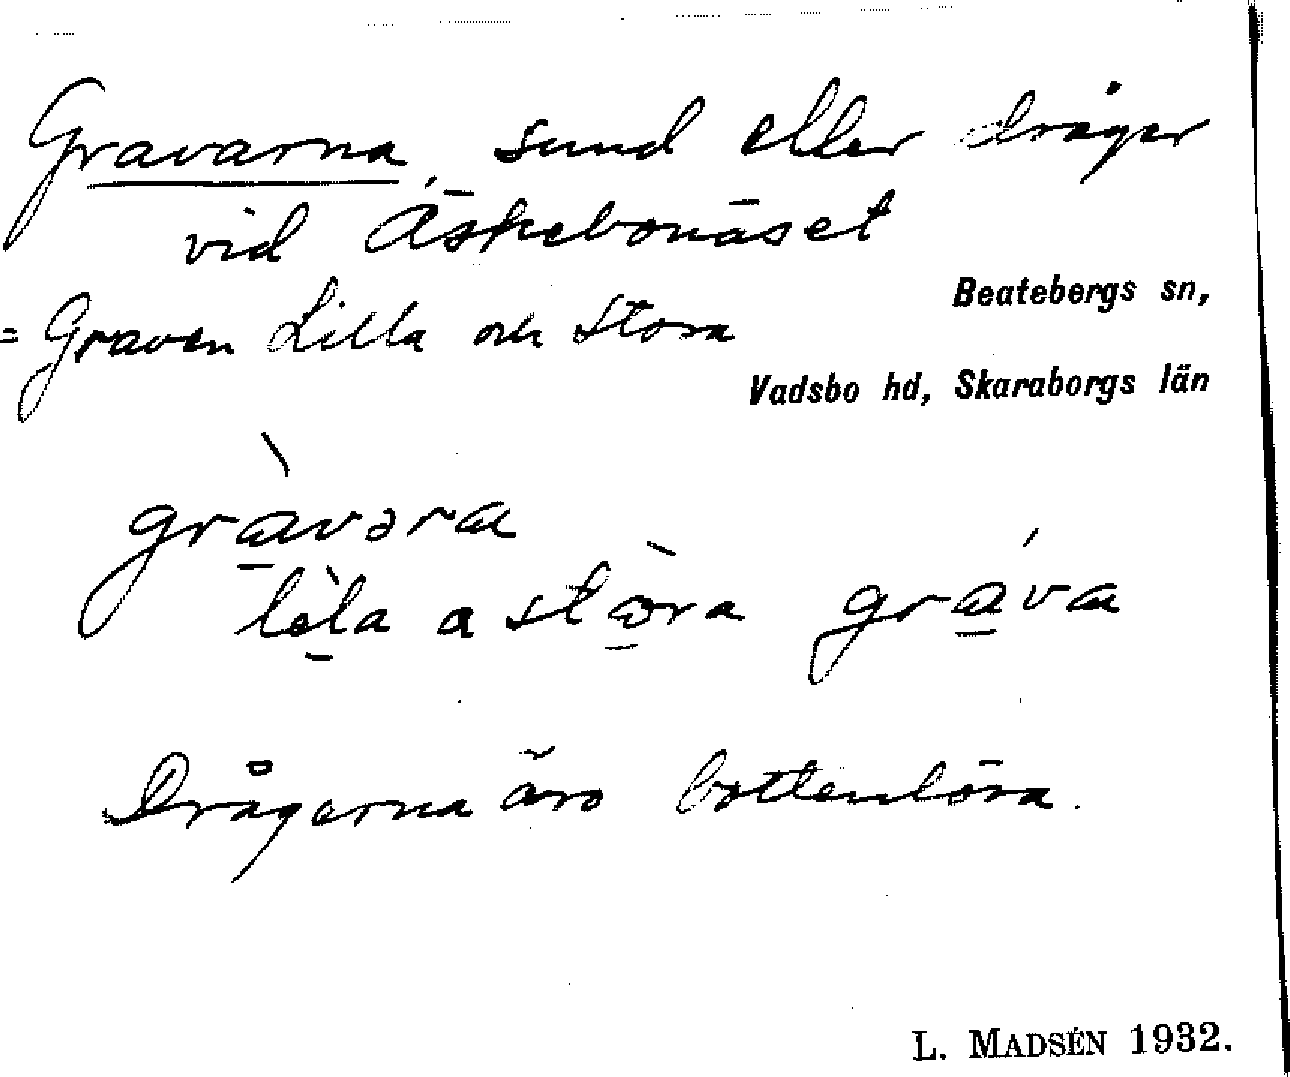 Gravarna, sund eller dråger
vid Äskebonäset
Beatebergs sn,
= Graven Lilla och Stora
Vadsbo hd, Skaraborgs län
gràvəra
lèla a stòra gráva
Drågerna äro bottenlösa.
L. MADSÉN 1932.